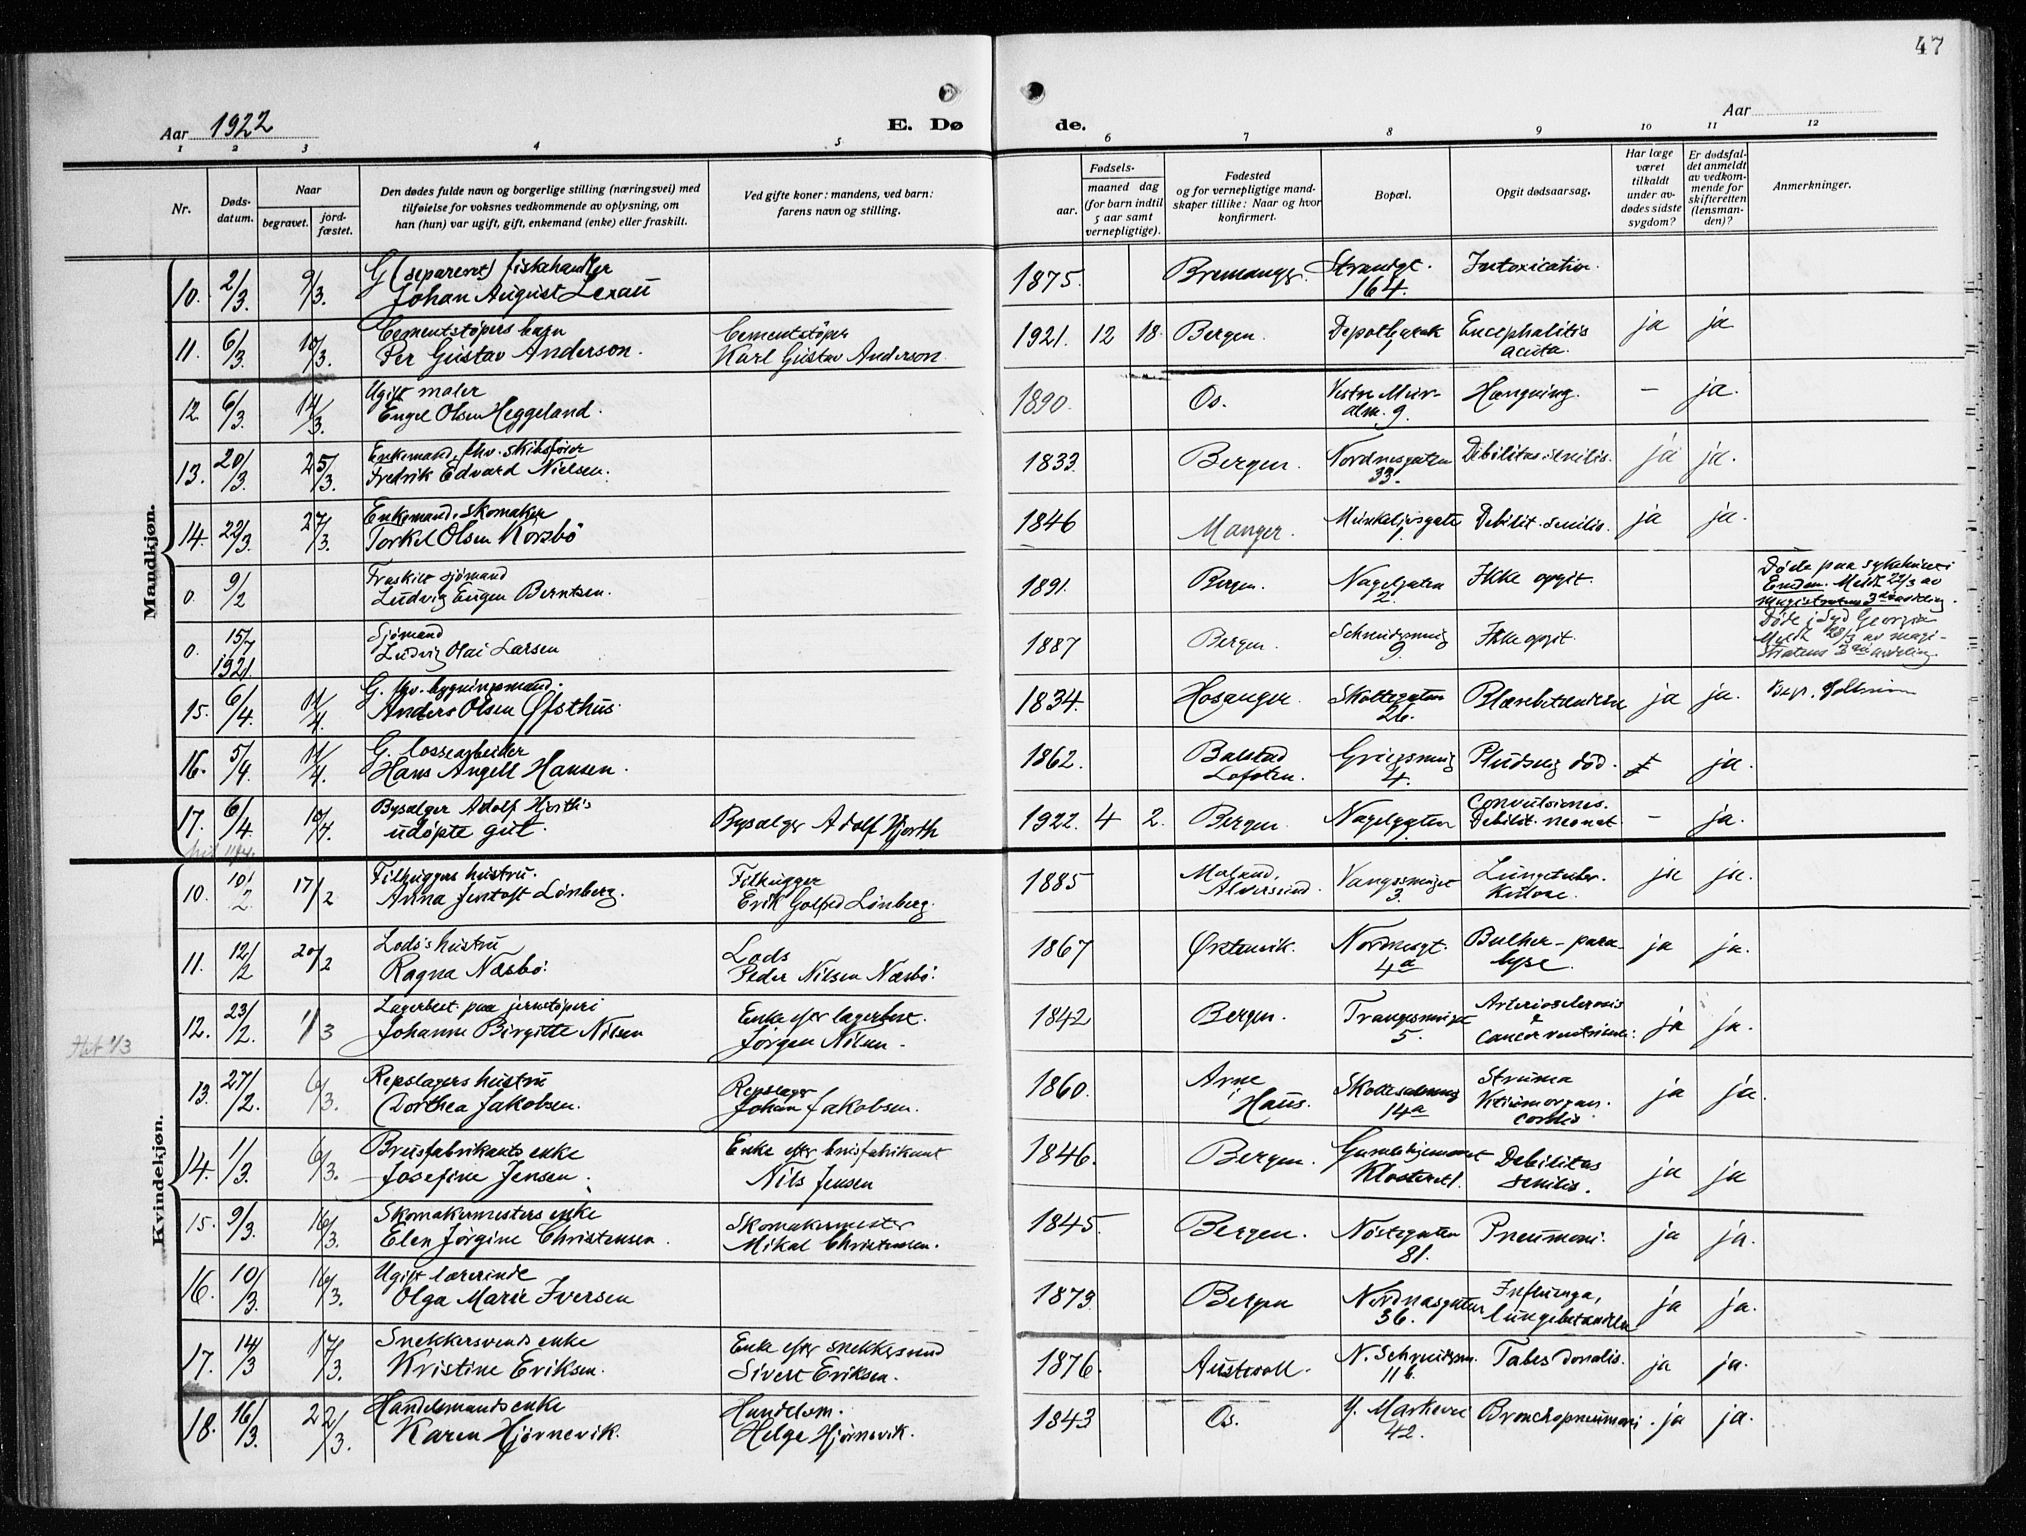 47
Aar 1922
E. Dø de.
Aar
1 2 3 4 5 6 7 8 9 10 11 12
Nr.
Døds-
datum.
Naar
begravet.
jord-
fæstet.
Den dødes fulde navn og borgerlige stilling (næringsvei) med
tilføielse for voksnes vedkommende av oplysning, om
han (hun) var ugift, gift, enkemand (enke) eller fraskilt.
Ved gifte koner: mandens, ved barn:
farens navn og stilling.
Fødsels-
aar.
maaned dag
(for barn indtil
5 aar samt
vernepligtige).
Fødested
og for vernepligtige mand-
skaper tillike: Naar og hvor
konfirmert.
Bopæl.
Opgit dødsaarsag.
Har læge
været
tilkaldt
under av-
dødes sidste
sygdom?
Er dødsfal-
det anmeldt
av vedkom-
mende for
skifteretten
(lensman-
den)?
Anmerkninger.
Mandkjøn.
10. 2/3 9/3. G (separeret) fiskehandler
Johan August Lexau 1875. Bremanger Strandgt.
164. Intoxication.
11. 6/3. 10/3. Cementstøpers barn
Per Gustav Anderson. Cementstøper
Karl Gustav Anderson. 1921. 12 18. Bergen. Depotbarak Encephalitis
acuta. ja ja
12 6/3. 14/3. Ugift maler
Engel Olsen Heggeland. 1890. Os. Vestre Mur-
alm. 9. Hængning. – ja.
13. 20/3. 25/3. Enkemand, fhv. skibsfører
Fredrik Edvard Nielsen. 1833. Bergen. Nordnesgaten
33. Debilitas senilis. ja ja.
14. 22/3. 27/3. Enkemand, skomaker
Torkel Olsen Korsbø 1846 Manger. Munkelivsgate
1. Debilit. senilis. ja ja.
0. 9/2 Fraskilt sjømand
Ludvig Eugen Berntsen. 1891. Bergen. Nagelgaten
2. Ikke opgit. Døde paa sykehuset i
Emden. Meldt 22/3 av
magistratens 3die avdeling.
0. 15/7
1921. Sjømand
Ludvig Olai Larsen 1887 Bergen. Schneidersmug
9. Ikke opgit. Døde i Syd Georgia
Meldt 28/3 av magi-
stratens 3die avdeling.
15. 6/4. 11/4. G. fhv. bygningsmand.
Anders Olsen Øfsthus. 1834. Hosanger. Skottegaten
26. Blærebetændelse ja ja.
16. 5/4. 11/4. G. lossearbeider
Hans Angell Hansen. 1862. Balstad
Lofoten. Griegsmug
4. Pludselig død. ja.
17. 6/4. 10/4. Bysælger Adolf Hjorths
udøpte gut. Bysælger Adolf Hjorth 1922. 4 2. Bergen Nagelgaten Convulsiones.
Debilit. neonat. – ja.
Kvindekjøn.
10. 10/2. 17/2 Filhuggers hustru.
Anna Jentoft Lönberg. Filhugger
Erik Golfred Lönberg. 1885 Moland,
Alversund. Vangsmuget
3. Lungetuber-
kulose. ja ja.
11. 12/2 20/2 Lods's hustru
Ragna Næsbø. Lods
Peder Nilsen Næsbø. 1867 Øxtervik. Nordnesgt.
4a Bulbær-para
lyse. ja ja.
12. 23/2. 1/3 Lagerbest. paa jernstøperi
Johanne Birgitte Nilsen Enke efter lagerbest.
Jörgen Nilsen. 1842 Bergen. Trangesmuget
5. Arteriosclerosis
&
cancer ventriculi. ja ja.
13. 27/2. 6/3. Repslagers hustru
Dorthea Jakobsen. Repslager
Johan Jakobsen. 1860. Arne
i Haus. Skottesalmug
14a Struma
Vitium organ.
cordis ja ja.
14. 1/3. 6/3. Brusfabrikants enke
Josefine Jensen. Enke efter brusfabrikant
Nils Jensen 1846. Bergen. Gamlehjemmet
Klosteret. Debilitas
senilis. ja ja
15. 9/3. 16/3. Skomakermesters enke
Elen Jörgine Christensen. Skomakermester
Mikal Christensen. 1845. Bergen. Nöstegaten
81. Pneumoni. ja ja.
16. 10/3. 16/3. Ugift lærerinde
Olga Marie Iversen 1873. Bergen Nordnæsgaten
36. Influenza,
lungebetændelse ja ja.
17. 14/3 17/3. Snekkersvends enke
Kristine Eriksen. Enke efter snekkersvend
Sivert Eriksen. 1876. Austevoll. N. Schreudersm.
11 b. Tabes dorsalis. ja ja.
18. 16/3. 22/3. Handelsmands enke
Karen Hjørnevik. Handelsm.
Helge Hjørnevik. 1843 Os. Y. Markevei
42. Bronchopneumoni. ja ja.